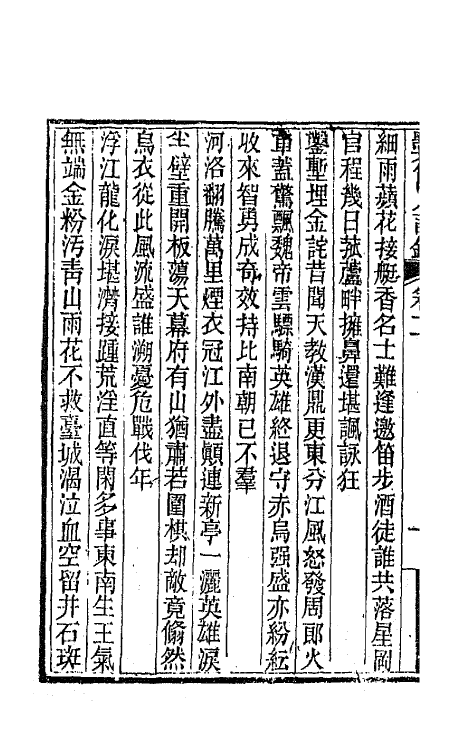 細雨蘋花接艇香名士難逢邀笛步酒徒誰共落星岡
官程幾日菰蘆畔擁鼻還堪諷詠狂
鑿塹埋金詫昔聞天教漢鼎更東分江風怒發周郎火
車蓋驚飄魏帝雲驃騎英雄終退守赤烏强盛亦紛紜
收來智勇成奇效持比南朝已不羣
河洛翻騰萬里煙衣冠江外盡顛連新亭一灑英雄淚
尘壁重開板蕩天幕府有山猶肅若圍棋却敵竟翛然
烏衣從此風流盛誰溯憂危戰伐年
浮江龍化淚堪潸接踵荒淫直等閑多事東南生王氣
無端金粉汚靑山雨花不救臺城渴泣血空留井石斑
卷二